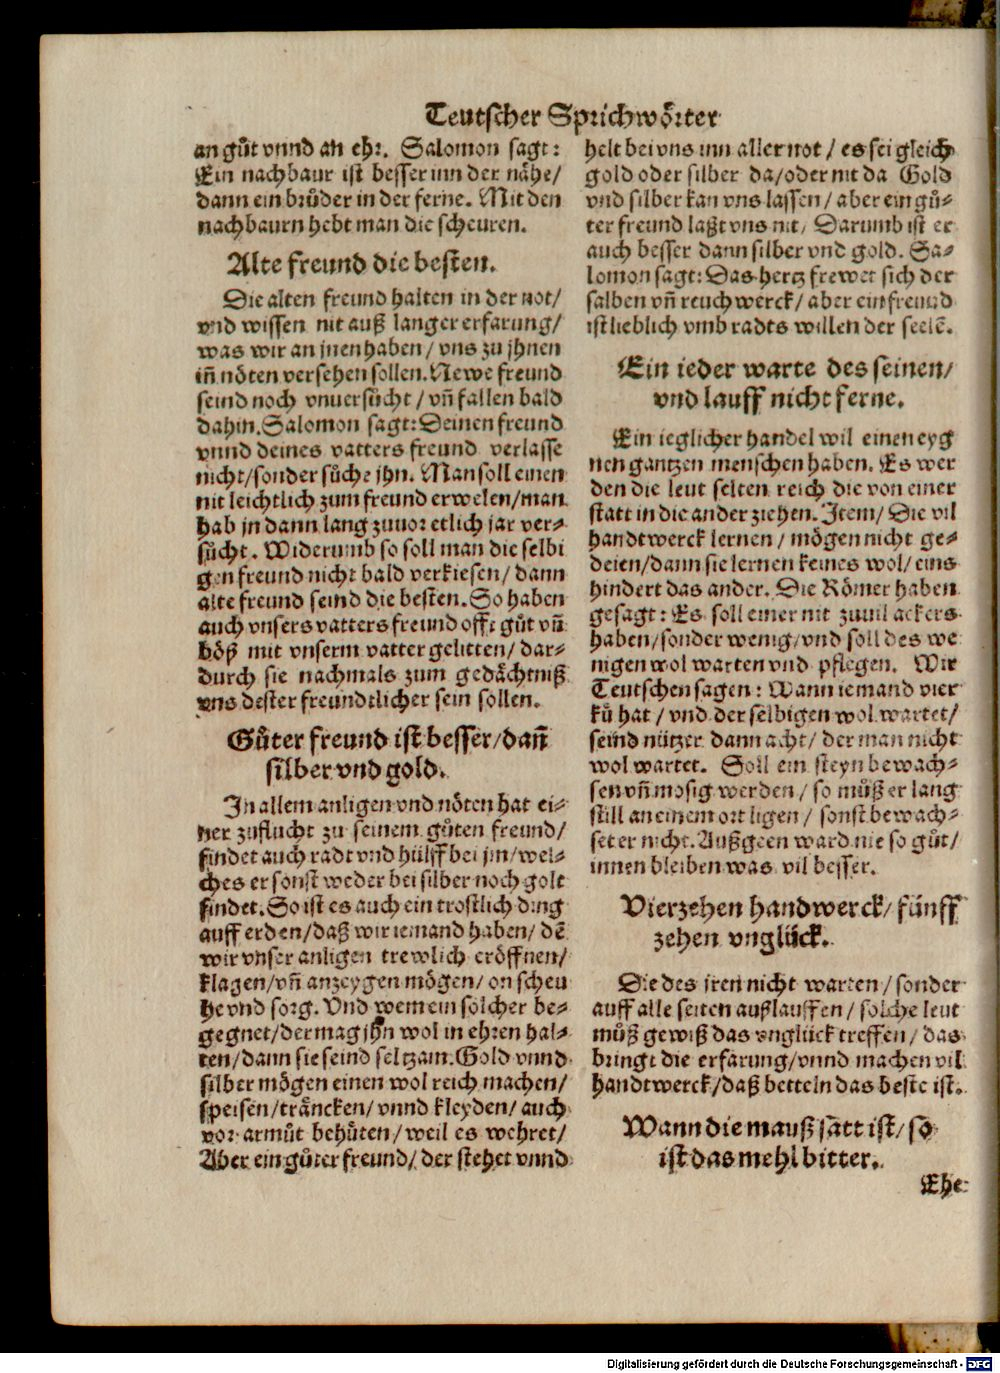 Teutscher Sprichwoͤrter
an guͦt vnnd an ehr. Salomon sagt:
Ein nachbaur ist besser inn der naͤhe/
dann ein bruͦder in der ferne. Mit den
nachbaurn hebt man die scheuren.
Alte freund die besten.
Die alten freund halten in der not/
vnd wissen nit auß langer erfarung/
was wir an jnen haben/ vns zu jhnen
inn̄ noͤten versehen sollen. Newe freund
seind noch vnuersuͦcht/ vn̄ fallen bald
dahin. Salomon sagt: Deinen freund
vnnd deines vatters freund verlasse
nicht/ sonder suͦche jhn. Man soll einen
nit leichtlich zum freund erwelen/ man
hab jn dann lang zuuor etlich jar ver-
suͦcht. Widerumb so soll man die selbi
gen freund nicht bald verkiesen/ dann
alte freund seind die besten. So haben
auch vnsers vatters freund offt guͦt vn̄
boͤß mit vnserm vatter gelitten/ dar-
durch sie nachmals zum gedaͤchtniß
vns dester freundtlicher sein sollen.
Guͦter freund ist besser/ dann̄
silber vnd gold.
In allem anligen vnd noͤten hat ei-
ner zuflucht zu seinem guͦten freund/
findet auch radt vnd huͤlff bei jm/ wel-
ches er sonst weder bei silber noch golt
findet. So ist es auch ein trostlich ding
auff erden/ daß wir iemand haben/ dē
wir vnser anligen trewlich eroͤffnen/
klagen/ vn̄ anzeygen moͤgen/ on scheu
he vnd sorg. Vnd wem ein solcher be-
gegnet/ der mag jhn wol in ehren hal-
ten/ dann sie seind seltzam. Gold vnnd
silber moͤgen einen wol reich machen/
speisen/ traͤncken/ vnnd kleyden/ auch
vor armuͦt behuͤten/ weil es wehret/
Aber ein guͦter freund/ der stehet vnnd
helt bei vns inn aller not/ es sei gleich
gold oder silber da/ oder nit da Gold
vnd silber kan vns lassen/ aber ein guͦ-
ter freund laßt vns nit/ Darumb ist er
auch besser dann silber vnd gold. Sa-
lomon sagt: Das hertz frewet sich der
salben vn̄ reuchwerck/ aber ein freund
ist lieblich vmb radts willen der seelē.
Ein ieder warte des seinen/
vnd lauff nicht ferne.
Ein ieglicher handel wil einen eyg
nen gantzen menschen haben. Es wer
den die leut selten reich die von einer
statt in die ander ziehen. Item/ Die vil
handtwerck lernen/ moͤgen nicht ge-
deien/ dann sie lernen keines wol/ eins
hindert das ander. Die Roͤmer haben
gesagt: Es soll einer nit zuuil ackers
haben/ sonder wenig/ vnd soll des we
nigen wol warten vnd pflegen. Wir
Teutschen sagen: Wann iemand vier
kuͤ hat/ vnd der selbigen wol wartet/
seind nuͤtzer dann acht/ der man nicht
wol wartet. Soll ein steyn bewach-
sen vn̄ mosig werden/ so muͦß er lang
still an einem ort ligen/ sonst bewach-
set er nicht. Außgeen ward nie so guͦt/
innen bleiben was vil besser.
Vierzehen handwerck/ fuͤnff
zehen vngluͤck.
Die des jren nicht warten/ sonder
auff alle seiten außlauffen/ solche leut
muͦß gewiß das vngluͤck treffen/ das
bringt die erfarung/ vnnd machen vil
handtwerck/ daß betteln das beste ist.
Wann die mauß satt ist/ so
ist das mehl bitter.
Ehe
Digitalisierung gefördert durch die Deutsche Forschungsgemeinschaft - DFG